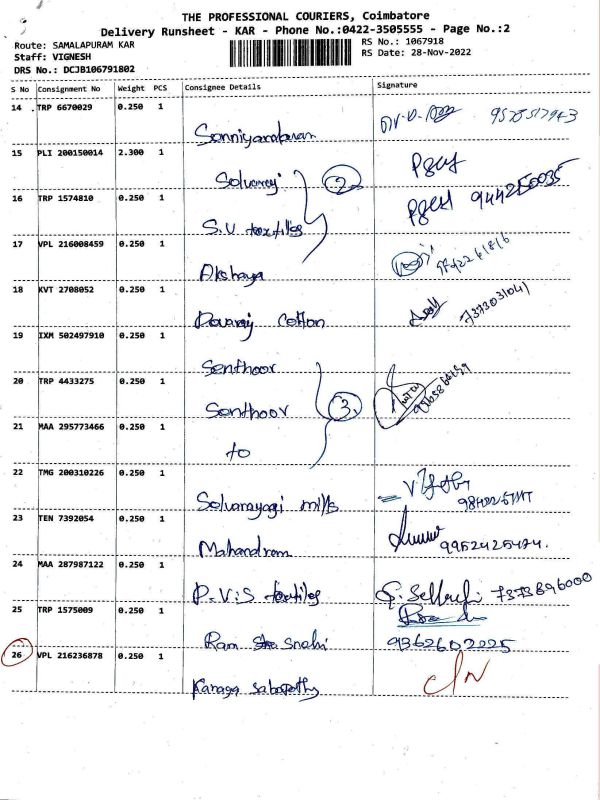 THE PROFESSIONAL COURIERS, Coimbatore
Delivery Runsheet - KAR - Phone No.:0422-3505555 - Page No.:2
Route: SAMALAPURAM KAR
Staff: VIGNESH
DRS No.: DCJB106791802
RS No.: 1067918
RS Date: 28-Nov-2022
S No Consignment No Weight PCS Consignee Details Signature
14 TRP 6670029 0.250 1
15 PLI 200150014 2.300 1
Selvaraj 2
16 TRP 1574810 0.250 1
S.V textiles 9442150035
17 VPL 216008459 0.250 1
Akshaya
18 KVT 2708052 0.250 1
Devaraj Cotton 7373031041
19 IXM 502497910 0.250 1
Senthoor
20 TRP 4433275 0.250 1
Senthoor 3.
21 MAA 295773466 0.250 1
to
22 TMG 200310226 0.250 1
Selvanayagi mills
23 TEN 7392054 0.250 1
Mahandram 9952425474.
24 MAA 287987122 0.250 1
P.V.S textiles 7373896000
25 TRP 1575009 0.250 1
Ram Snehi 9362602225
26 VPL 216236878 0.250 1
Kanaga sabapathy C/N